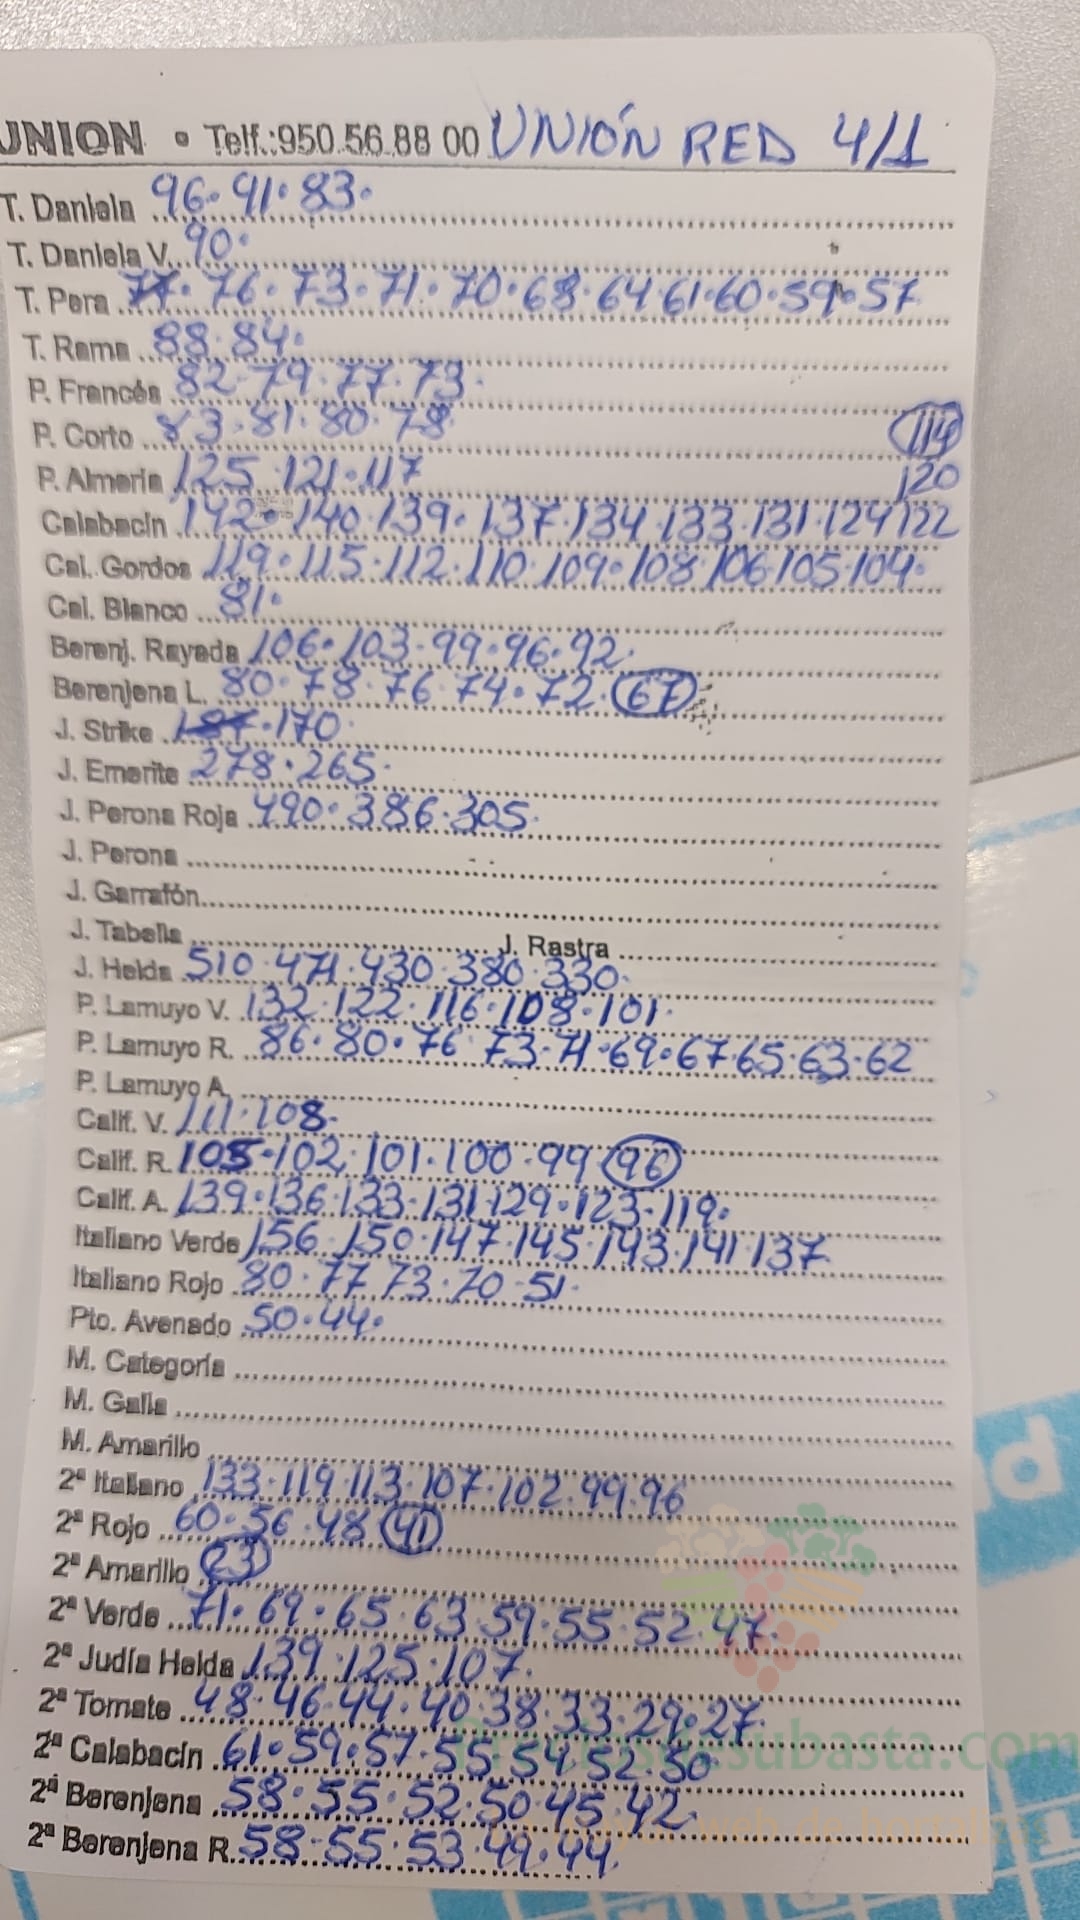 UNION • Telf.:950 56 88 00 UNIÓN RED 4/1
T. Daniela 96. 91. 83.
T. Daniela V. 90.
T. Pera 77. 76. 73. 71. 70. 68. 64 61. 60. 59. 57
T. Rama 88. 84.
P. Francés 82. 79. 77. 73.
P. Corto 83. 81. 80. 78. 114
P. Almería 125. 121. 117 120
Calabacín 142. 140. 139. 137. 134. 133. 131. 124 122
Cal. Gordos 119. 115. 112. 110. 109. 108. 106. 105. 104.
Cal. Blanco 81.
Berenj. Rayada 106. 103. 99. 96. 92.
Berenjena L. 80. 78. 76. 74. 72. 67
J. Strike 170.
J. Emerite 278. 265.
J. Perona Roja 490. 386. 305.
J. Perona
J. Garrafón
J. Tabella J. Rastra
J. Helda 510. 471. 430. 380. 330.
P. Lamuyo V. 132. 122. 116. 108. 101.
P. Lamuyo R. 86. 80. 76. 73. 71. 69. 67. 65. 63. 62
P. Lamuyo A.
Calif. V. 111. 108.
Calif. R. 105. 102. 101. 100. 99 96
Calif. A. 139. 136. 133. 131. 129. 123. 119.
Italiano Verde 156. 150. 147. 145. 143. 141. 137
Italiano Rojo 80. 77 73. 70. 51.
Pto. Avenado 50. 44.
M. Categoría
M. Galia
M. Amarillo
2ª Italiano 133. 119. 113. 107. 102. 99. 96
2ª Rojo 60. 56. 48 41
2ª Amarillo 23
2ª Verde 71. 69. 65. 63. 59. 55. 52. 47.
2ª Judía Helda 139. 125. 107.
2ª Tomate 48. 46. 44. 40. 38. 33. 29. 27.
2ª Calabacín 61. 59. 57. 55. 54. 52. 50
2ª Berenjena 58. 55. 52. 50. 45. 42.
2ª Berenjena R. 58. 55. 53. 49. 44.